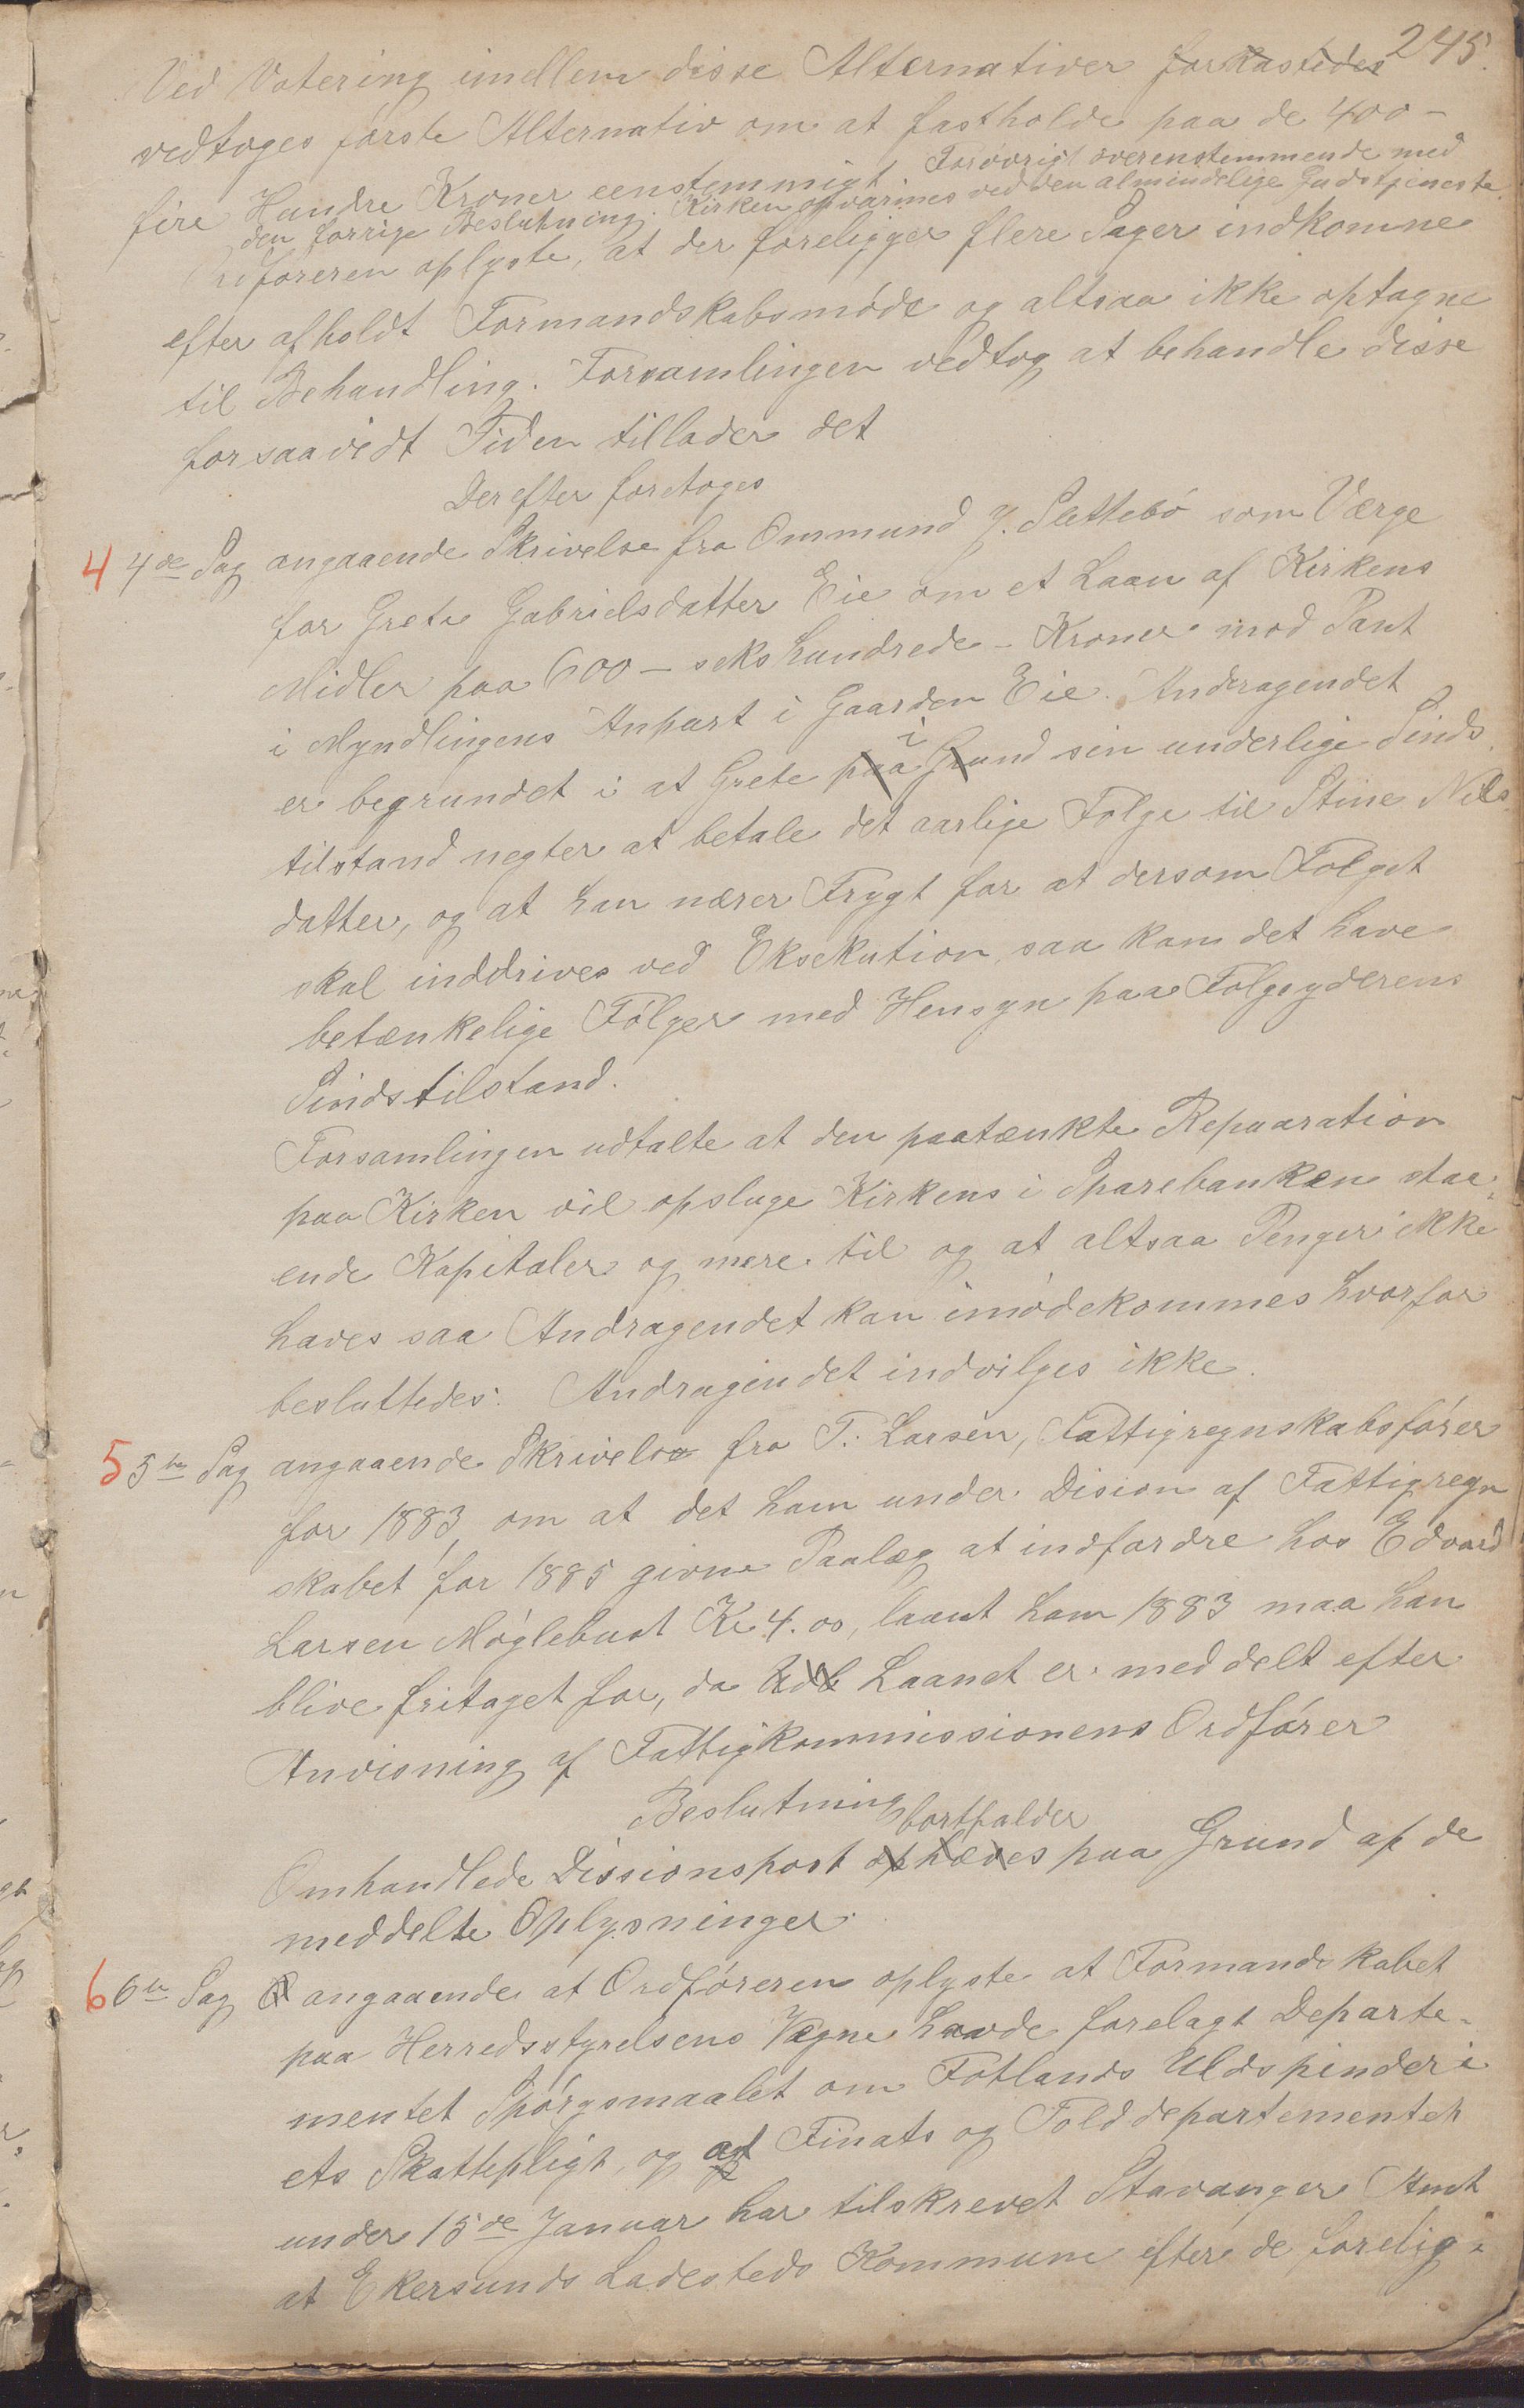 245.
Ved Votering imellem disse Alternativer forkastedes
vedtoges første Alternativ om at fastholde paa de 400 –
fire Hundre Kroner eenstemmigt. Forøvrigt overenstemmende med
den forrige Beslutning. Kirken opvarmes ved den almindelige Gudstjeneste.
Ordføreren oplyste, at der foreligger flere Sager indkomne
efter afholdt Formandskabsmøde og altsaa ikke optagne
til Behandling. Forsamlingen vedtog at behandle disse
forsaavidt Tiden tillader det
Derefter foretoges
4 4de Sag angaaende Skrivelse fra Ommund J. Slettebø som Værge
for Grete Gabrielsdatter Eie om et Laan af Kirkens
Midler paa 600 – seks hundrede – Kroner mod Pant
i Myndlingens Anpart i Gaarden Eie. Andragendet
er begrundet i at Grete paa Grund i sin underlige Sinds
tilstand negter at betale det aarlige Følge til Stine Nils
datter, og at han nærer Frygt for at dersom Følget
skal inddrives ved Eksekution, saa kan det have
betænkelige Følger med Hensyn paa Følgeyderens
Sindstilstand.
Forsamlingen udtalte at den paatænkte Reparation
paa Kirken vil opsluge Kirkens i Sparebanken staa-
ende Kapitaler og mere til og at altsaa Penger ikke
haves saa Andragendet kan imødekommes hvorfor
besluttedes: Andragendet indvilges ikke.
5 5te Sag angaaende Skrivelse fra T. Larsen, Fattigregnskabsfører
for 1883, om at det ham under Dision af Fattigregn
skabet for 1885 givne Paalæg at indfordre hos Edvard
Larsen Møglebust Kr 4.00, laant ham 1883 maa han
blive fritaget for, da Udb Laanet er meddelt efter
Anvisning af Fattigkommissionens Ordfører
Beslutning
Omhandlede Dissionspost ophæves bortfalder paa Grund af de
meddelte Oplysninger.
6 6te Sag angaaende at Ordføreren oplyste at Formandskabet
paa Herredsstyrelsens Vegne havde forelagt Departe-
mentet Spørgsmaalet om Fotlands Uldspinderi
ets Skattepligt, og at Finats og Tolddepartementet
under 15de Januar har tilskrevet Stavanger Amt
at Ekersunds Ladesteds Kommune efter de forelig-